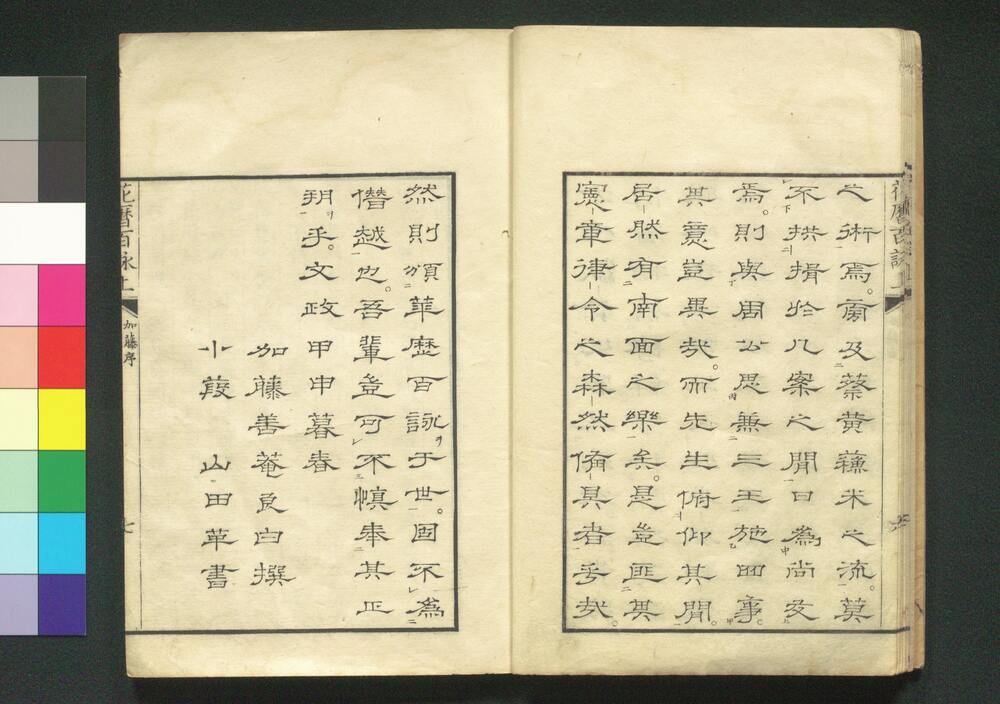 花曆百詠上
之術焉。旁及蔡黃蘓米之流。莫
不拱揖於几案之間日為尚友
焉。則與周公思兼三王施四事。
其意豈異哉。而先生俯仰其間。
居然有南面之樂矣。是豈匪其
憲章律令之森然備具者乎哉。
然則頒華歷百詠于世。固不為
僭越也。吾輩豈可不慎奉其正
朔乎。文政甲申暮春
加藤善菴良白撰
小葭 山田革書
花曆百詠上 加藤序